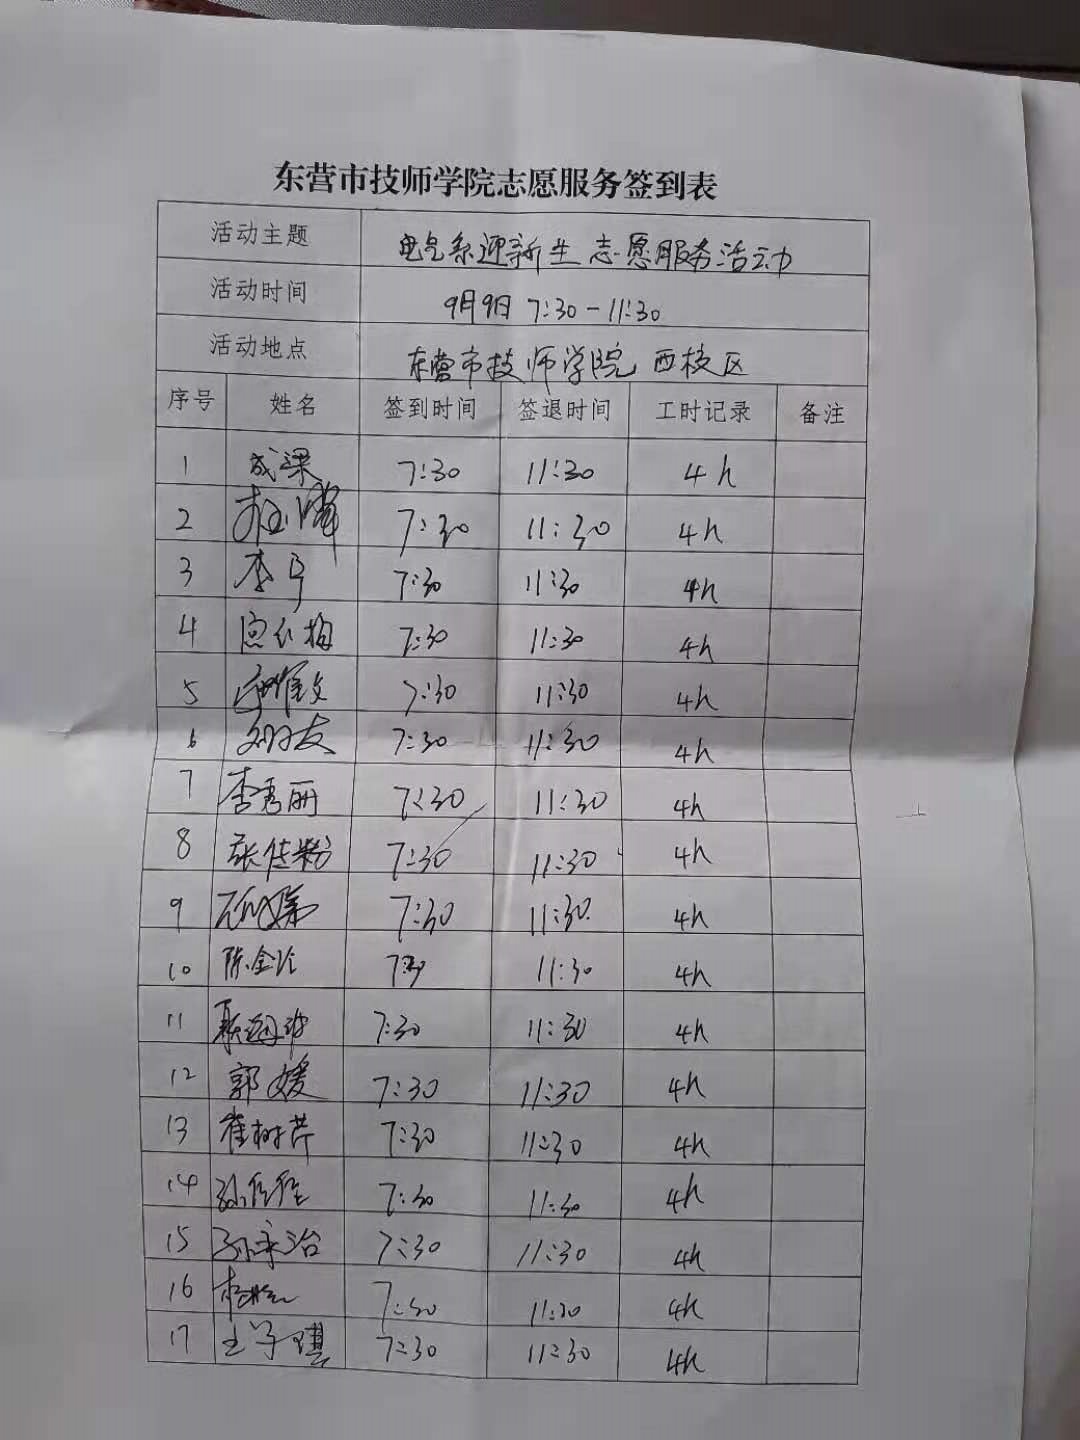 东营市技师学院志愿服务签到表
活动主题 电气系迎新生志愿服务活动
活动时间 9月9日 7:30-11:30
活动地点 东营市技师学院西校区
序号 姓名 签到时间 签退时间 工时记录 备注
1 成梁 7:30 11:30 4h
2 7:30 11:30 4h
3 李宁 7:30 11:30 4h
4 7:30 11:30 4h
5 7:30 11:30 4h
6 7:30 11:30 4h
7 李秀丽 7:30 11:30 4h
8 张佳粉 7:30 11:30 4h
9 7:30 11:30 4h
10 陈金玲 7:30 11:30 4h
11 聂海波 7:30 11:30 4h
12 郭媛 7:30 11:30 4h
13 崔树芹 7:30 11:30 4h
14 7:30 11:30 4h
15 孙宗治 7:30 11:30 4h
16 7:30 11:30 4h
17 王子琪 7:30 11:30 4h